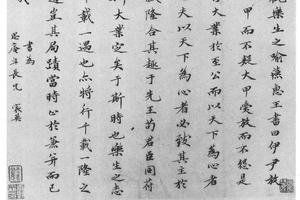 樂生之喻燕惠王書曰伊尹放
甲而不疑大甲受放而不怨是
大業於至公而以天下為心者
以天下為心者必致其主於
隆合其趣于先王苟君臣同符
大業定矣于斯時也樂生之志
載一遇也亦將行千載一隆之
豈其局蹟當時止於兼并而已
書為
年長兄